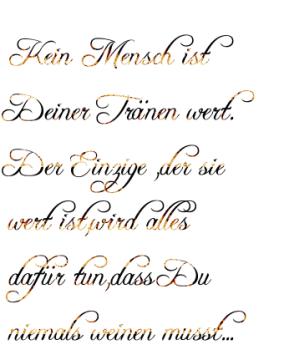 Kein Mensch ist
Deiner Tränen wert.
Der Einzige ,der sie
wert ist,wird alles
dafür tun,dass Du
niemals weinen musst...